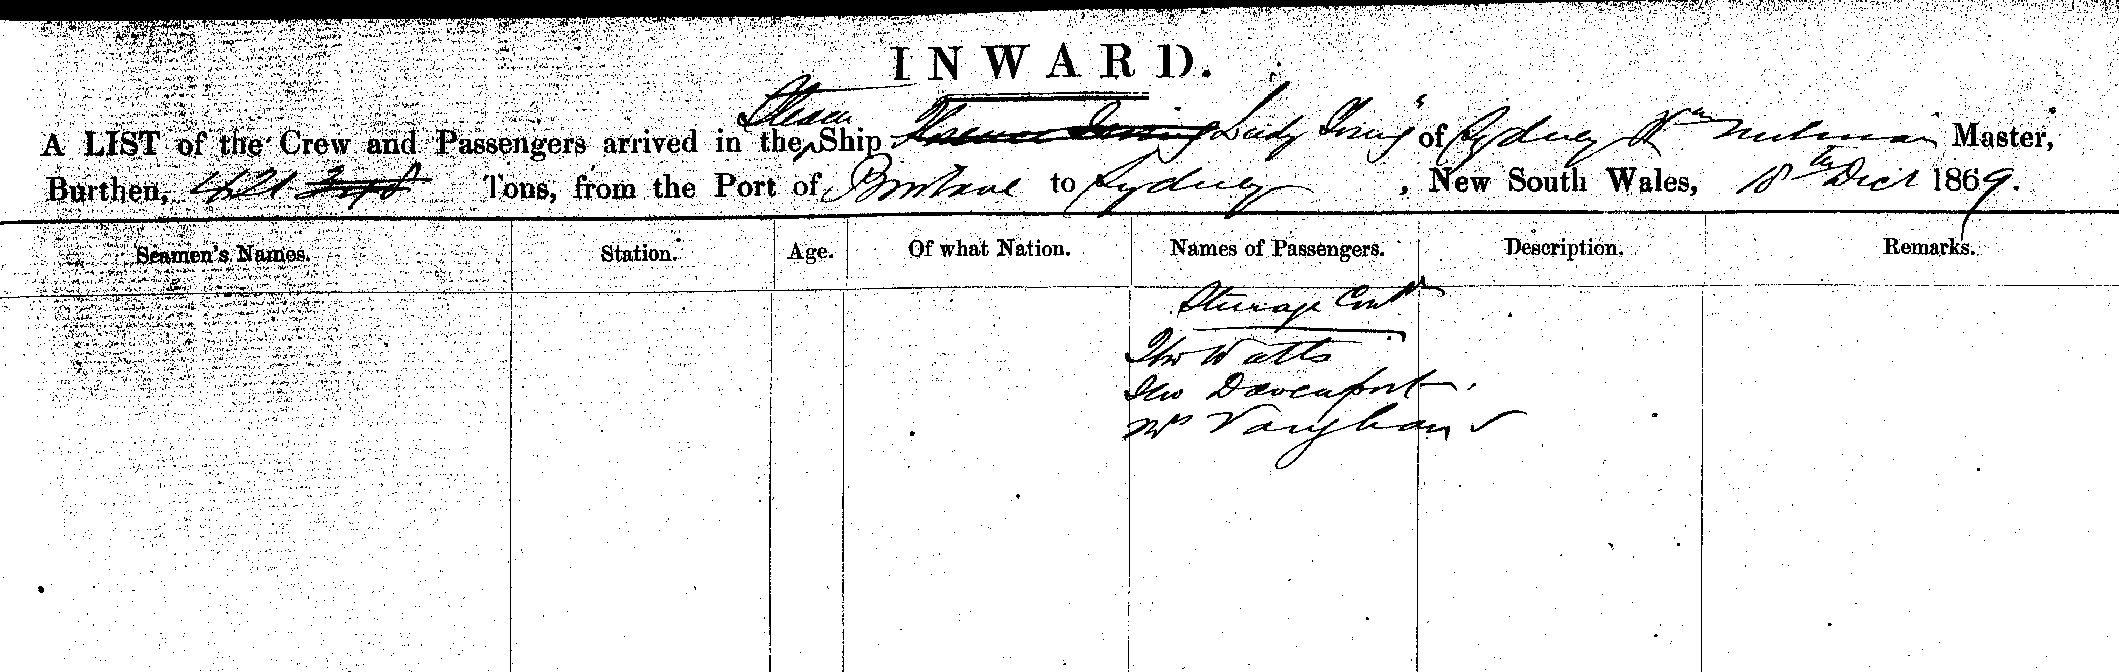 INWARD.
Steam
A LIST of the Crew and Passengers arrived in the Ship Florence Irving Lady Young" of Sydney Wm Master,
Burthen, 421 Tons, from the Port of Brisbane to Sydney, New South Wales, 18th Decr 1869.
Seamen's Names. Station. Age. Of what Nation. Names of Passengers. Description. Remarks.
Steerage Contd
Thos Watts
Thos Davenport.
Mrs Vaughan